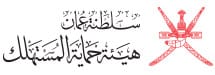 سلطنة عمان
هيئة حماية المستهلك